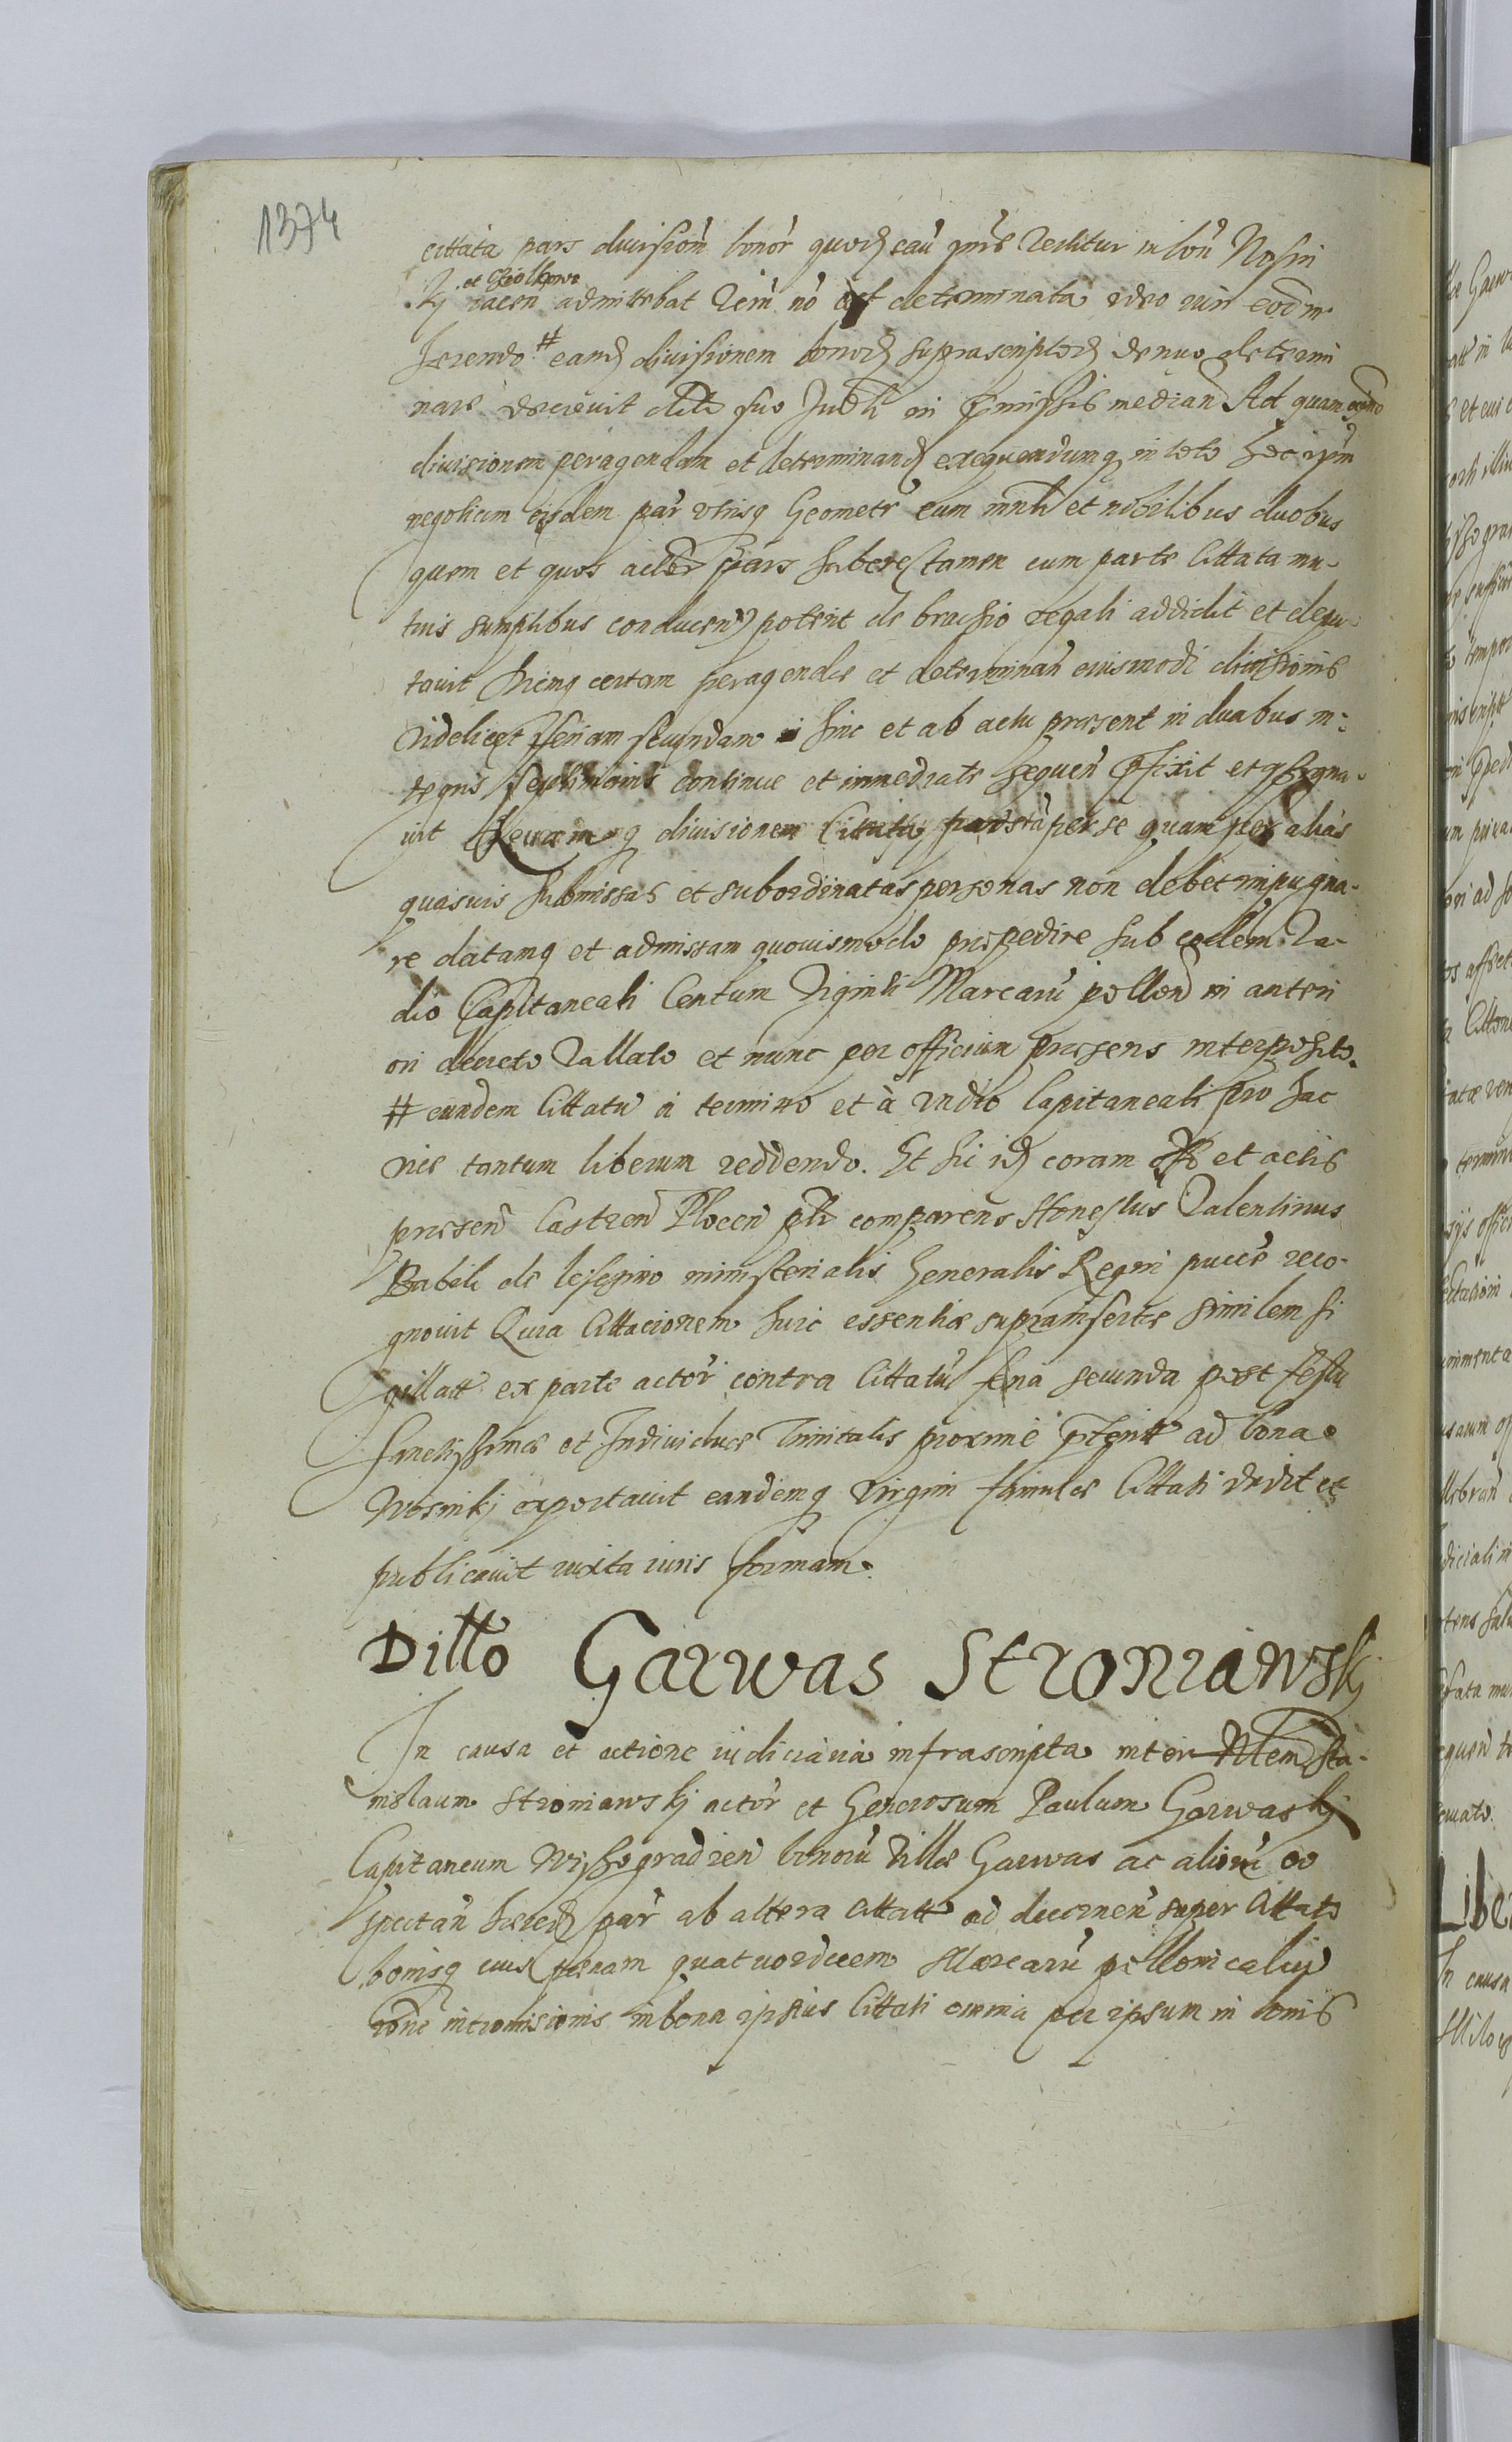 1374
cittata pars division bonor quorum cau pns vertitur in bon Nosin
kj et Cziolkowo iacen admittebat Tein no est determinata ideo iuri eodm
herendo # eand divisionem bonor suprascriptor denuo determi
nare decrevit decreto suo Judli in pmissis median Ad quam quidem
divisionem peragendam et determinand exequendumq in toto hoc ipm
negotium eisdem par utrisq Geometr cum mnli et nobilibus duobus
quem et quos actor pars habere tamen cum parte Cittata mu-
tuis sumptibus conducen poterit de brachio regali addidit et depu-
tavit diemq certam peragendae et determinan eiusmodi divisionis
videlicet feriam secundam hinc et ab actu present in duabus in-
tegris septimanis continue et immediate sequen pfixit et assigna-
vit Quamq divisionem Cittata pars ta per se quam per alias
quasvis submissas et subordinatas personas non debet impugna-
re datamq et admissam quovismodo praepedire sub eodem Va-
dio Capitaneali Centum Viginti Marcaru pollon in anteri
ori decreto vallato et nunc per officium praesens interposito.
# eundem Cittatu a termino et à vadio Capitaneali pro hac
vice tantum liberum reddendo. Et hic id coram offo et actis
praesen Castren Plocen pli comparens Honestus Valentinus
Babek de ministerialis Generalis Regni recog-
gnovit Quia Cittacionem huic essentiae suprainsertae similem si
gillatt ex parte actor contra Cittatu feria secunda post festu
Sanctissimae et Individuae Trinitatis proxime pterit ad bona
Nosinkj exportavit eandemq virgini famulae Cittati dedit et
publicavit iuxta iuris formam.
Ditto Garwas Stroniawskj
In causa et actione iudiciaria infrascripta inter Nlem Sta-
nislaum Stroniawskj actor et Generosum Paulum Garwaskj
Capitaneum Wissogradien bonoru Villae Garwas ac alioru eo
spectan haered par ab altera Cittatt ad decernen super Cittato
bonisq eius paenam quatuordecem Marcaru pollonicaliu
rone intromissionis in bona ipsius Cittati omnia per ipsum in bonis